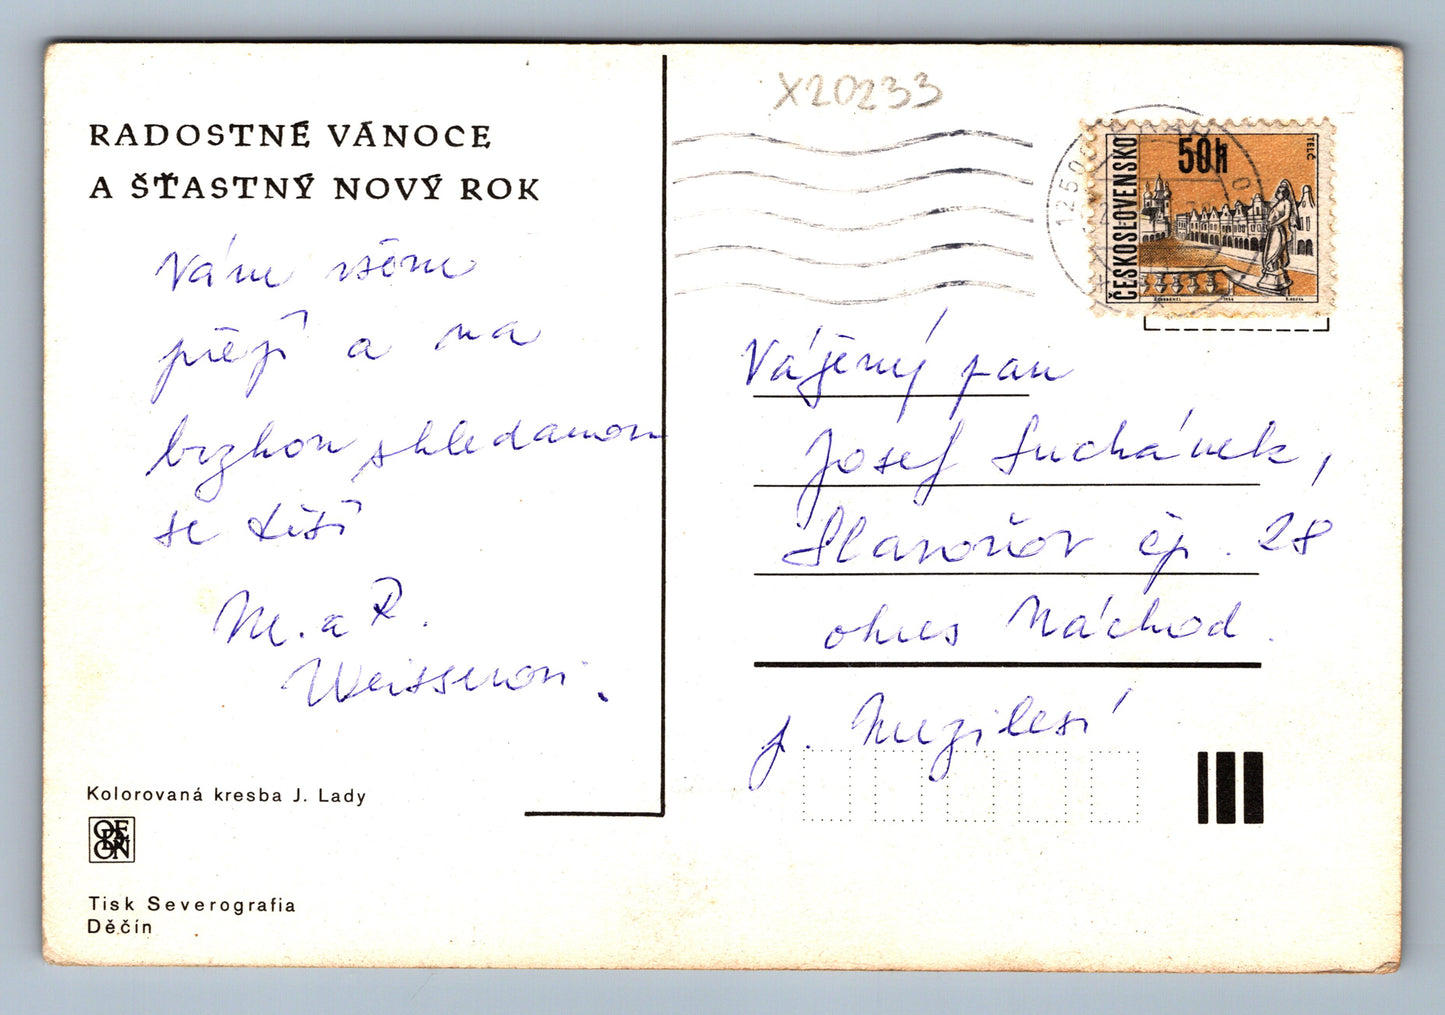 X20233
RADOSTNÉ VÁNOCE
A ŠŤASTNÝ NOVÝ ROK
Vám všem
přejí a na
brzkou shledanou
se těší
M. a R.
Weisserovi.
Kolorovaná kresba J. Lady
ODEON
Tisk Severografia
Děčín
ČESKOSLOVENSKO
50h
TELČ
Vážený pan
Josef Suchánek,
Slavoňov čp. 28
okres Náchod.
p. Mezilesí